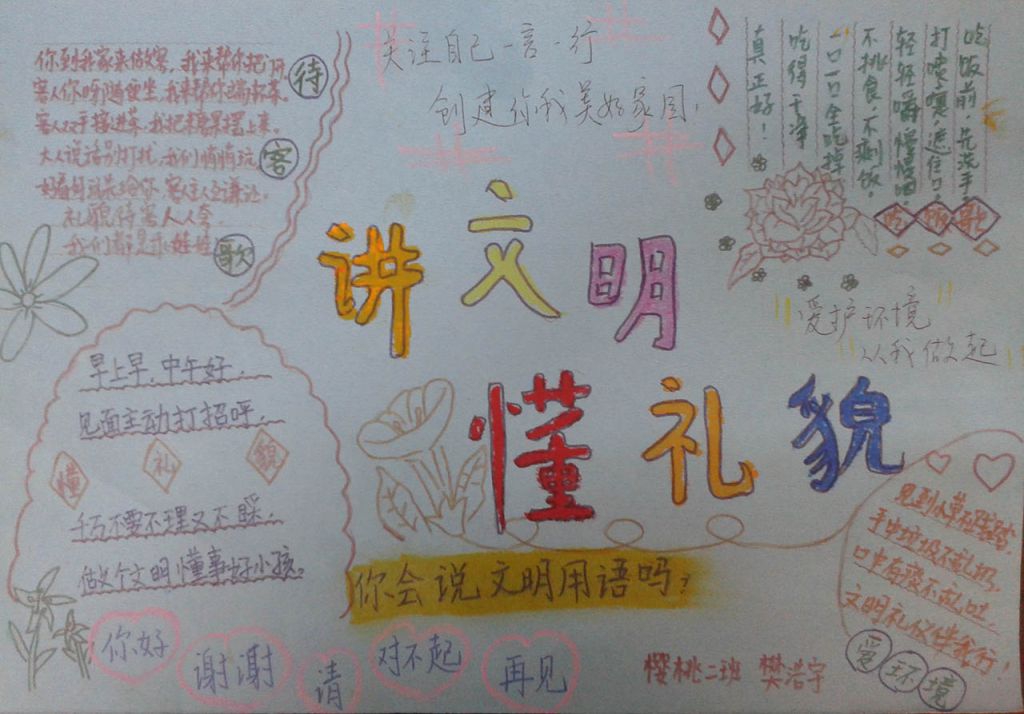 关注自己一言一行
创建你我美好家园！
你到我家来做客，我来帮你把门
客人你呀随便坐，我来帮你端杯茶。
客人双手接进茶，我把糖果摆上来。
大人说话别打扰，我们悄悄玩
礼貌待客人人会
我们都是乖娃娃
待
客
歌
吃饭前，先洗手
打喷嚏遮住口。
轻轻嚼慢慢咽。
不挑食不剩饭。
一口一口全吃掉
吃得干净
真正好！
吃饭歌
讲文明
懂礼貌
"爱护环境"
"从我做起"
早上早，中午好，
见面主动打招呼，
懂礼貌
千万不要不理又不睬，
做个文明懂事好小孩。
你会说文明用语吗？
你好
谢谢
请
对不起
再见
见到小草
手中垃圾不乱扔，
口中有痰不乱吐
文明礼仪伴我行！
爱环境
樱桃二班 樊浩宇